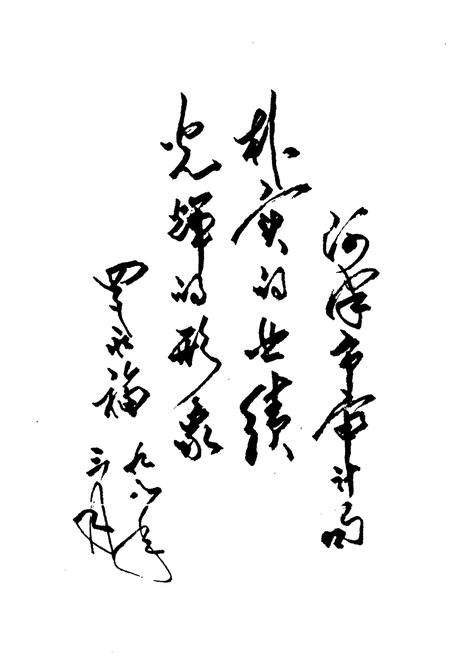 河津市审计局
朴实的业绩
光辉的形象
罗永福
九八年
三月